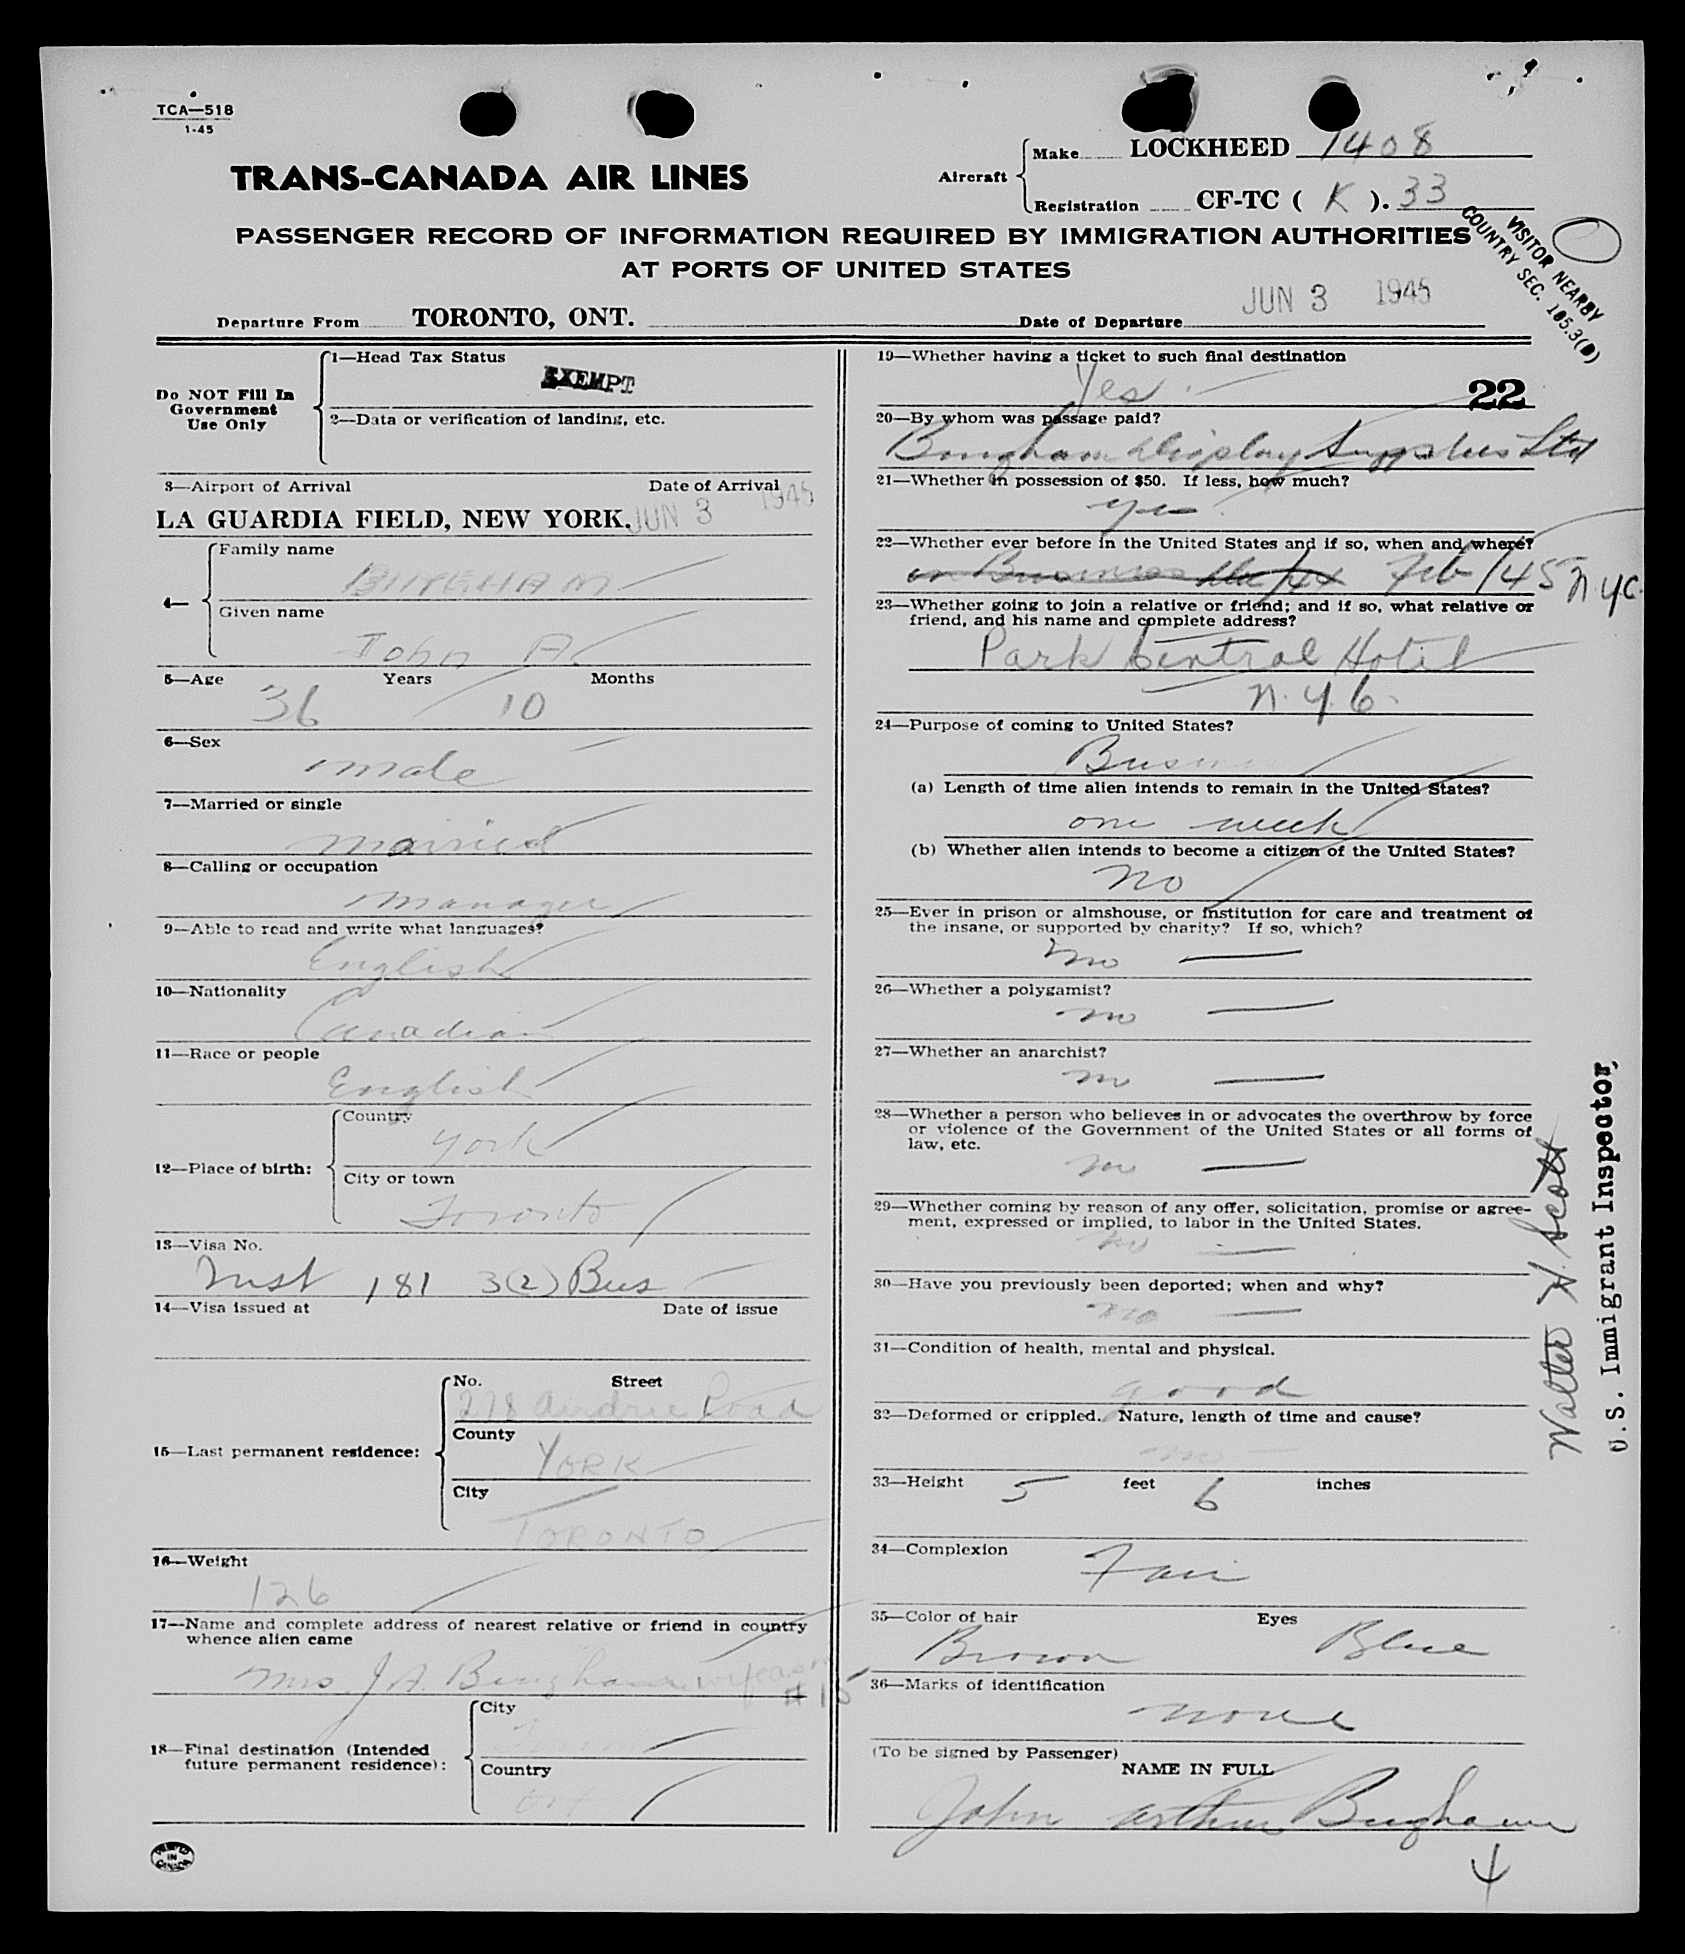 TCA—518
1-45
TRANS-CANADA AIR LINES
Aircraft
Make LOCKHEED 1408
Registration CF-TC ( K ). 33
PASSENGER RECORD OF INFORMATION REQUIRED BY IMMIGRATION AUTHORITIES
AT PORTS OF UNITED STATES
VISITOR NEARBY
COUNTRY SEC. 165.3(B)
Departure From TORONTO, ONT. Date of Departure JUN 3 1945
Do NOT Fill In
Government
Use Only
1—Head Tax Status
EXEMPT
2—Data or verification of landing, etc.
3—Airport of Arrival Date of Arrival
LA GUARDIA FIELD, NEW YORK. JUN 3 1945
4—
Family name
BINGHAM
Given name
John A.
5—Age Years Months
36 10
6—Sex
male
7—Married or single
married
8—Calling or occupation
manager
9—Able to read and write what languages?
English
10—Nationality
Canadian
11—Race or people
English
12—Place of birth:
Country
York
City or town
Toronto
13—Visa No.
181 3(2) Bus
14—Visa issued at Date of issue
15—Last permanent residence:
No. Street
278 Airdrie Road
County
YORK
City
TORONTO
16—Weight
126
17—Name and complete address of nearest relative or friend in country
whence alien came
Mrs. J A. Bingham wife as in
# 15
18—Final destination (Intended
future permanent residence):
City
Country
Ont
PRINTED
IN
CANADA
19—Whether having a ticket to such final destination
Yes
22
20—By whom was passage paid?
Bingham Display Supplies Ltd
21—Whether in possession of $50. If less, how much?
yes
22—Whether ever before in the United States and if so, when and where?
on Business Feb/45 N.Y.C.
23—Whether going to join a relative or friend; and if so, what relative or
friend, and his name and complete address?
Park Central Hotel
N.Y.C.
24—Purpose of coming to United States?
Business
(a) Length of time alien intends to remain in the United States?
one week
(b) Whether alien intends to become a citizen of the United States?
no
25—Ever in prison or almshouse, or institution for care and treatment of
the insane, or supported by charity? If so, which?
no —
26—Whether a polygamist?
no —
27—Whether an anarchist?
no —
28—Whether a person who believes in or advocates the overthrow by force
or violence of the Government of the United States or all forms of
law, etc.
no —
29—Whether coming by reason of any offer, solicitation, promise or agree-
ment, expressed or implied, to labor in the United States.
no —
30—Have you previously been deported; when and why?
no —
31—Condition of health, mental and physical.
good
32—Deformed or crippled. Nature, length of time and cause?
no —
33—Height 5 feet 6 inches
34—Complexion Fair
35—Color of hair Eyes
Brown Blue
36—Marks of identification
none
(To be signed by Passenger)
NAME IN FULL
John Arthur Bingham
Walter H. Scott
U.S. Immigrant Inspector,